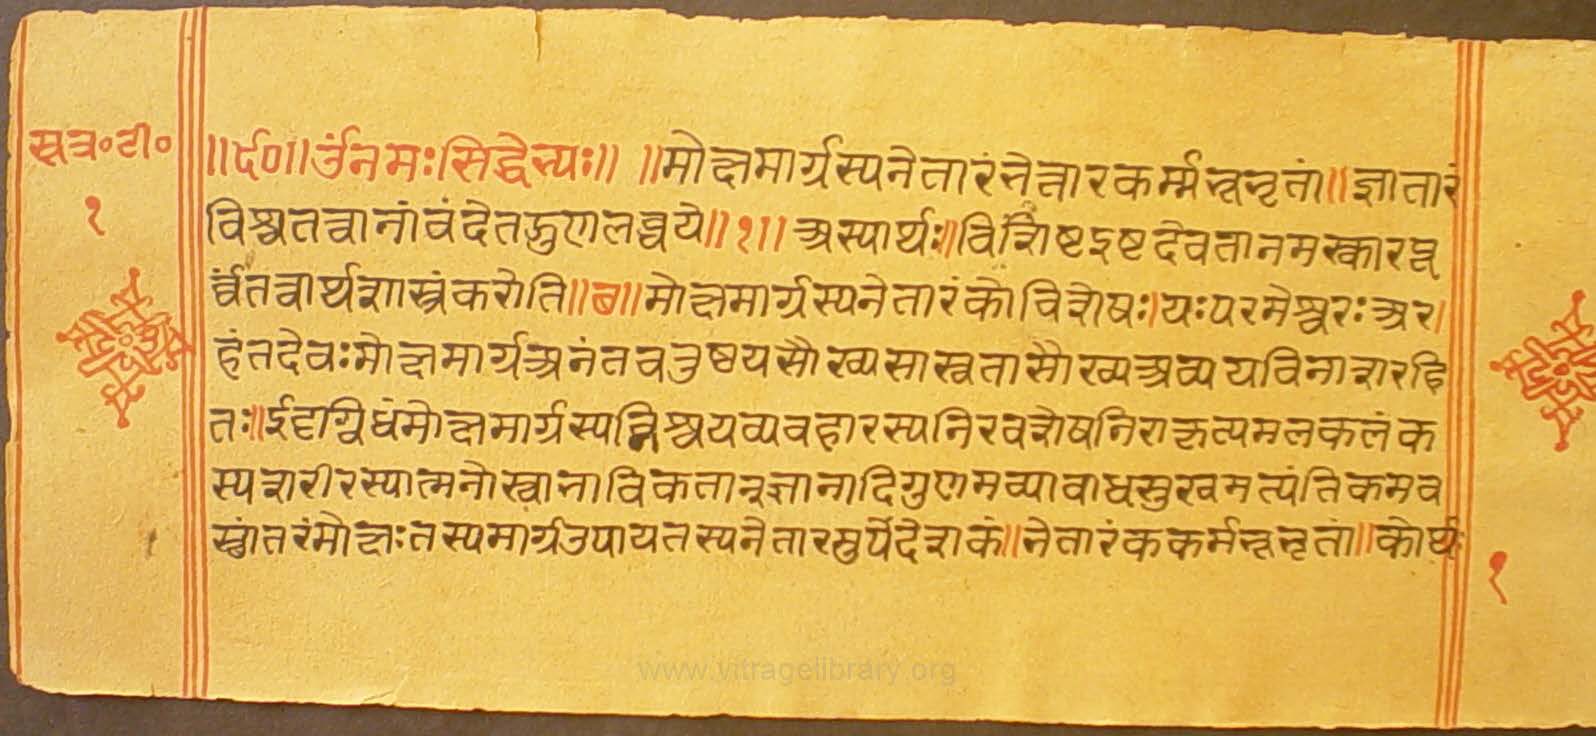 सूत्र॰टी॰
१
॥र्द॰॥ उंनमःसिद्धेभ्यः॥ ॥मोक्षमार्गस्यनेतारंभेत्तारकर्म्मभूभृतां॥ज्ञातारं
विश्वतत्वानांवंदेतद्गुणलब्धये॥१॥ अस्यार्थः॥विशिष्टइष्टदेवतानमस्कारपू
र्व्वंतत्वार्थशास्त्रंकरोति॥ब॥मोक्षमार्गस्यनेतारंकोविशेषः।यःपरमेश्वरःअर।
हंतदेवःमोक्षमार्गअनंतचतुष्टयसौख्यसास्वतासौख्यअव्ययविनाशरहि
तः॥ईदृग्विधंमोक्षमार्गस्यनिश्चयव्यवहारस्यनिरवशेषनिराकृत्यमलकलंक
स्यशरीरस्यात्मनोस्वाभाविकतान्ज्ञानादिगुणमव्याबाधसुखमत्यंतिकमव
स्थांतरंमोक्षःतस्यमार्गउपायतस्यनेतारमुपदेशकं॥नेतारंककर्मभूभृतां॥कोर्थः
१
www.vitragelibrary.org